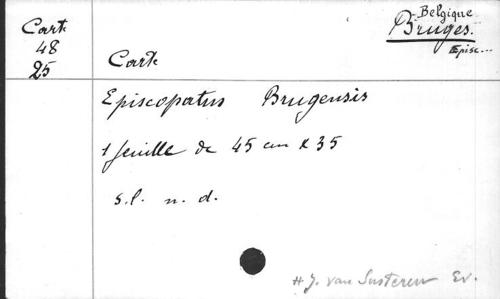 Carte
48
25
Belgique
Bruges.
Episc...
Carte
Episcopatus Brugensis
1 feuille de 45 cm x 35
s.l. n. d.
H J. van Susteren Ev.